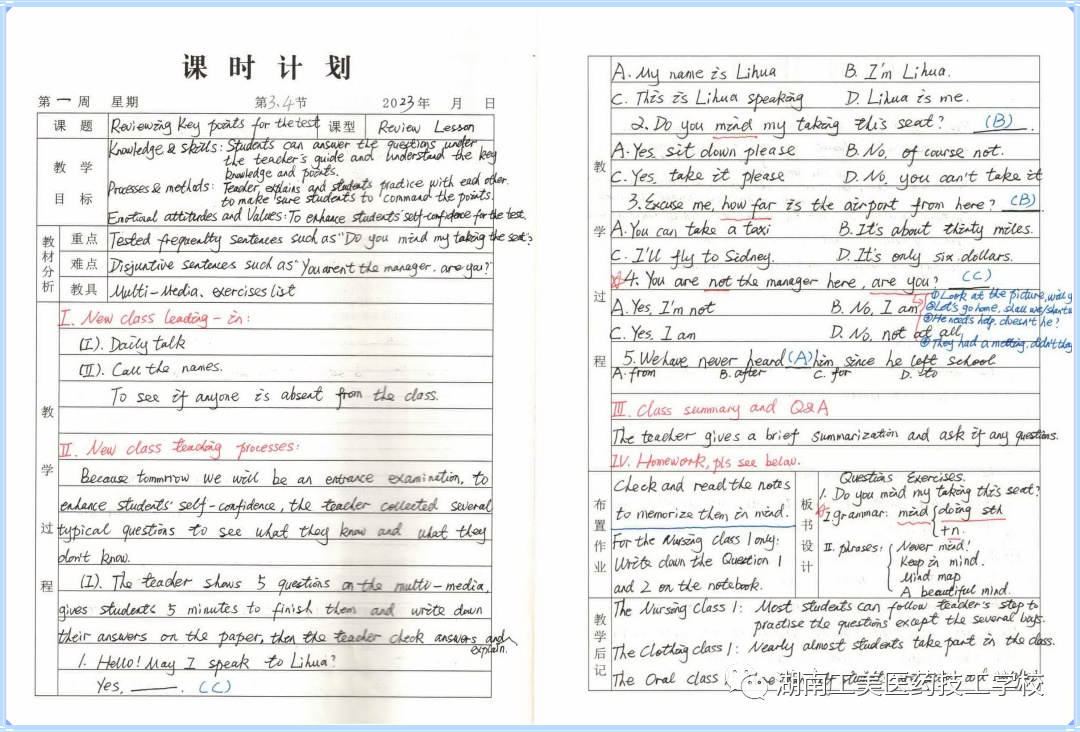 课时计划
第一周 星期 第3、4节 2023年 月 日
课题 Reviewing Key points for the test 课型 Review Lesson
教学目标
Knowledge & skills: Students can answer the questions under
the teacher's guide and understand the key
knowledge and points.
Processes & methods: Teacher explains and students practice with each other.
to make sure students to command the points.
Emotional attitudes and Values: To enhance students' self-confidence for the test.
教材分析
重点 Tested frequently sentences such as "Do you mind my taking the seat?
难点 Disjunctive sentences such as "You aren't the manager. are you?"
教具 Multi-Media、exercises list
教学过程
I. New class leading-in:
(I). Daily talk
(II). Call the names.
To see if anyone is absent from the class.
II. New class teaching processes:
Because tommrrow we will be an entrance examination, to
enhance students' self-confidence, the teacher collected several
typical questions to see what they know and what they
don't know.
(I). The teacher shows 5 questions on the multi-media,
gives students 5 minutes to finish them and write down
their answers on the paper, then the teacher check answers and
explain.
1. Hello! May I speak to Lihua?
Yes, ____. (C)
教学过程
A. My name is Lihua B. I'm Lihua.
C. This is Lihua speaking D. Lihua is me.
2. Do you mind my taking this seat? (B).
A. Yes, sit down please B. No, of course not.
C. Yes, take it please D. No, you can't take it
3. Excuse me, how far is the airport from here? (B).
A. You can take a taxi B. It's about thirty miles.
C. I'll fly to Sidney. D. It's only six dollars.
☆4. You are not the manager here, are you? (C)
①Look at the picture, will y
A. Yes, I'm not B. No, I am
②Let's go home, shall we/shan't w
③He needs help, doesn't he?
C. Yes, I am D. No, not at all
④They had a metting, didn't they
5. We have never heard (A) him since he left school
A. from B. after C. for D. to
III. Class summary and Q&A
The teacher gives a brief summarization and ask if any questions.
IV. Homework, pls see below.
布置作业
Check and read the notes
to memorize them in mind.
For the Nursing class 1 only:
Write down the Question 1
and 2 on the notebook.
板书设计
Questions Exercises.
1. Do you mind my taking this seat?
☆I. grammar: mind { doing sth
+n.
II. phrases: { Never mind!
Keep in mind.
Mind map
A beautiful mind.
教学后记
The Nursing class 1: Most students can follow teacher's step to
practise the questions except the several boys.
The Clothing class 1: Nearly almost students take part in the class.
The Oral class
湖南工美医药技工学校